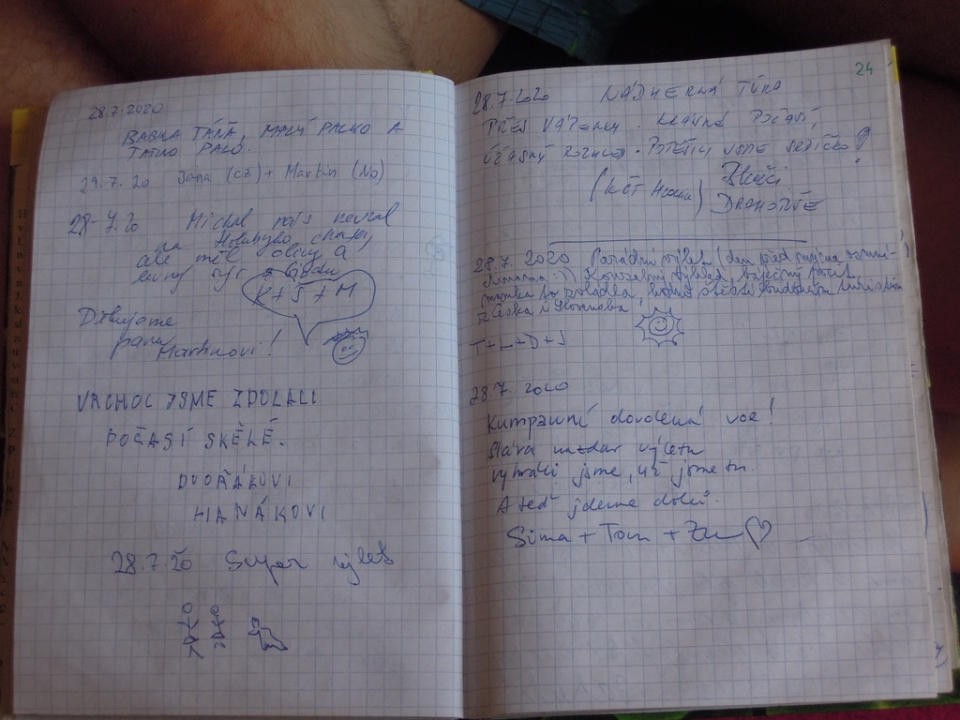 28.7.2020
BABKA TÁŇA, MALÝ PALKO A
TATKO PALO.
29.7.20 Jana (CZ) + Martin (NO)
28.7.20 Michal nás nevzal
na Holubyho chatu,
ale měl olivy a
K + J + M
Děkujeme
panu
Martinovi!
VRCHOL JSME ZDOLALI
POČASÍ SKĚLÉ.
DVOŘÁKOVI
HANÁKOVI
28.7.20 Super výlet
24
28.7.2020 NÁDHERNÁ TÚRA
PŘES VÁPENKY. KRÁSNÉ POČASÍ,
ÚŽASNÝ ROZHLED. POTĚŠILI JSME SRDÍČKO!
DRAHOTUŠE
28.7.2020 Parádní výlet (den před
výhled, báječný pocit
pořádku, hodně štěstí
z Česka i Slovenska
T+L+D+J
28.7. 2020
Kumpavní dovolená voe!
Sláva nazdar výletu
vyhráli jsme, už jsme tu.
A teď jdeme dolů.
Sima + Tom + Zu